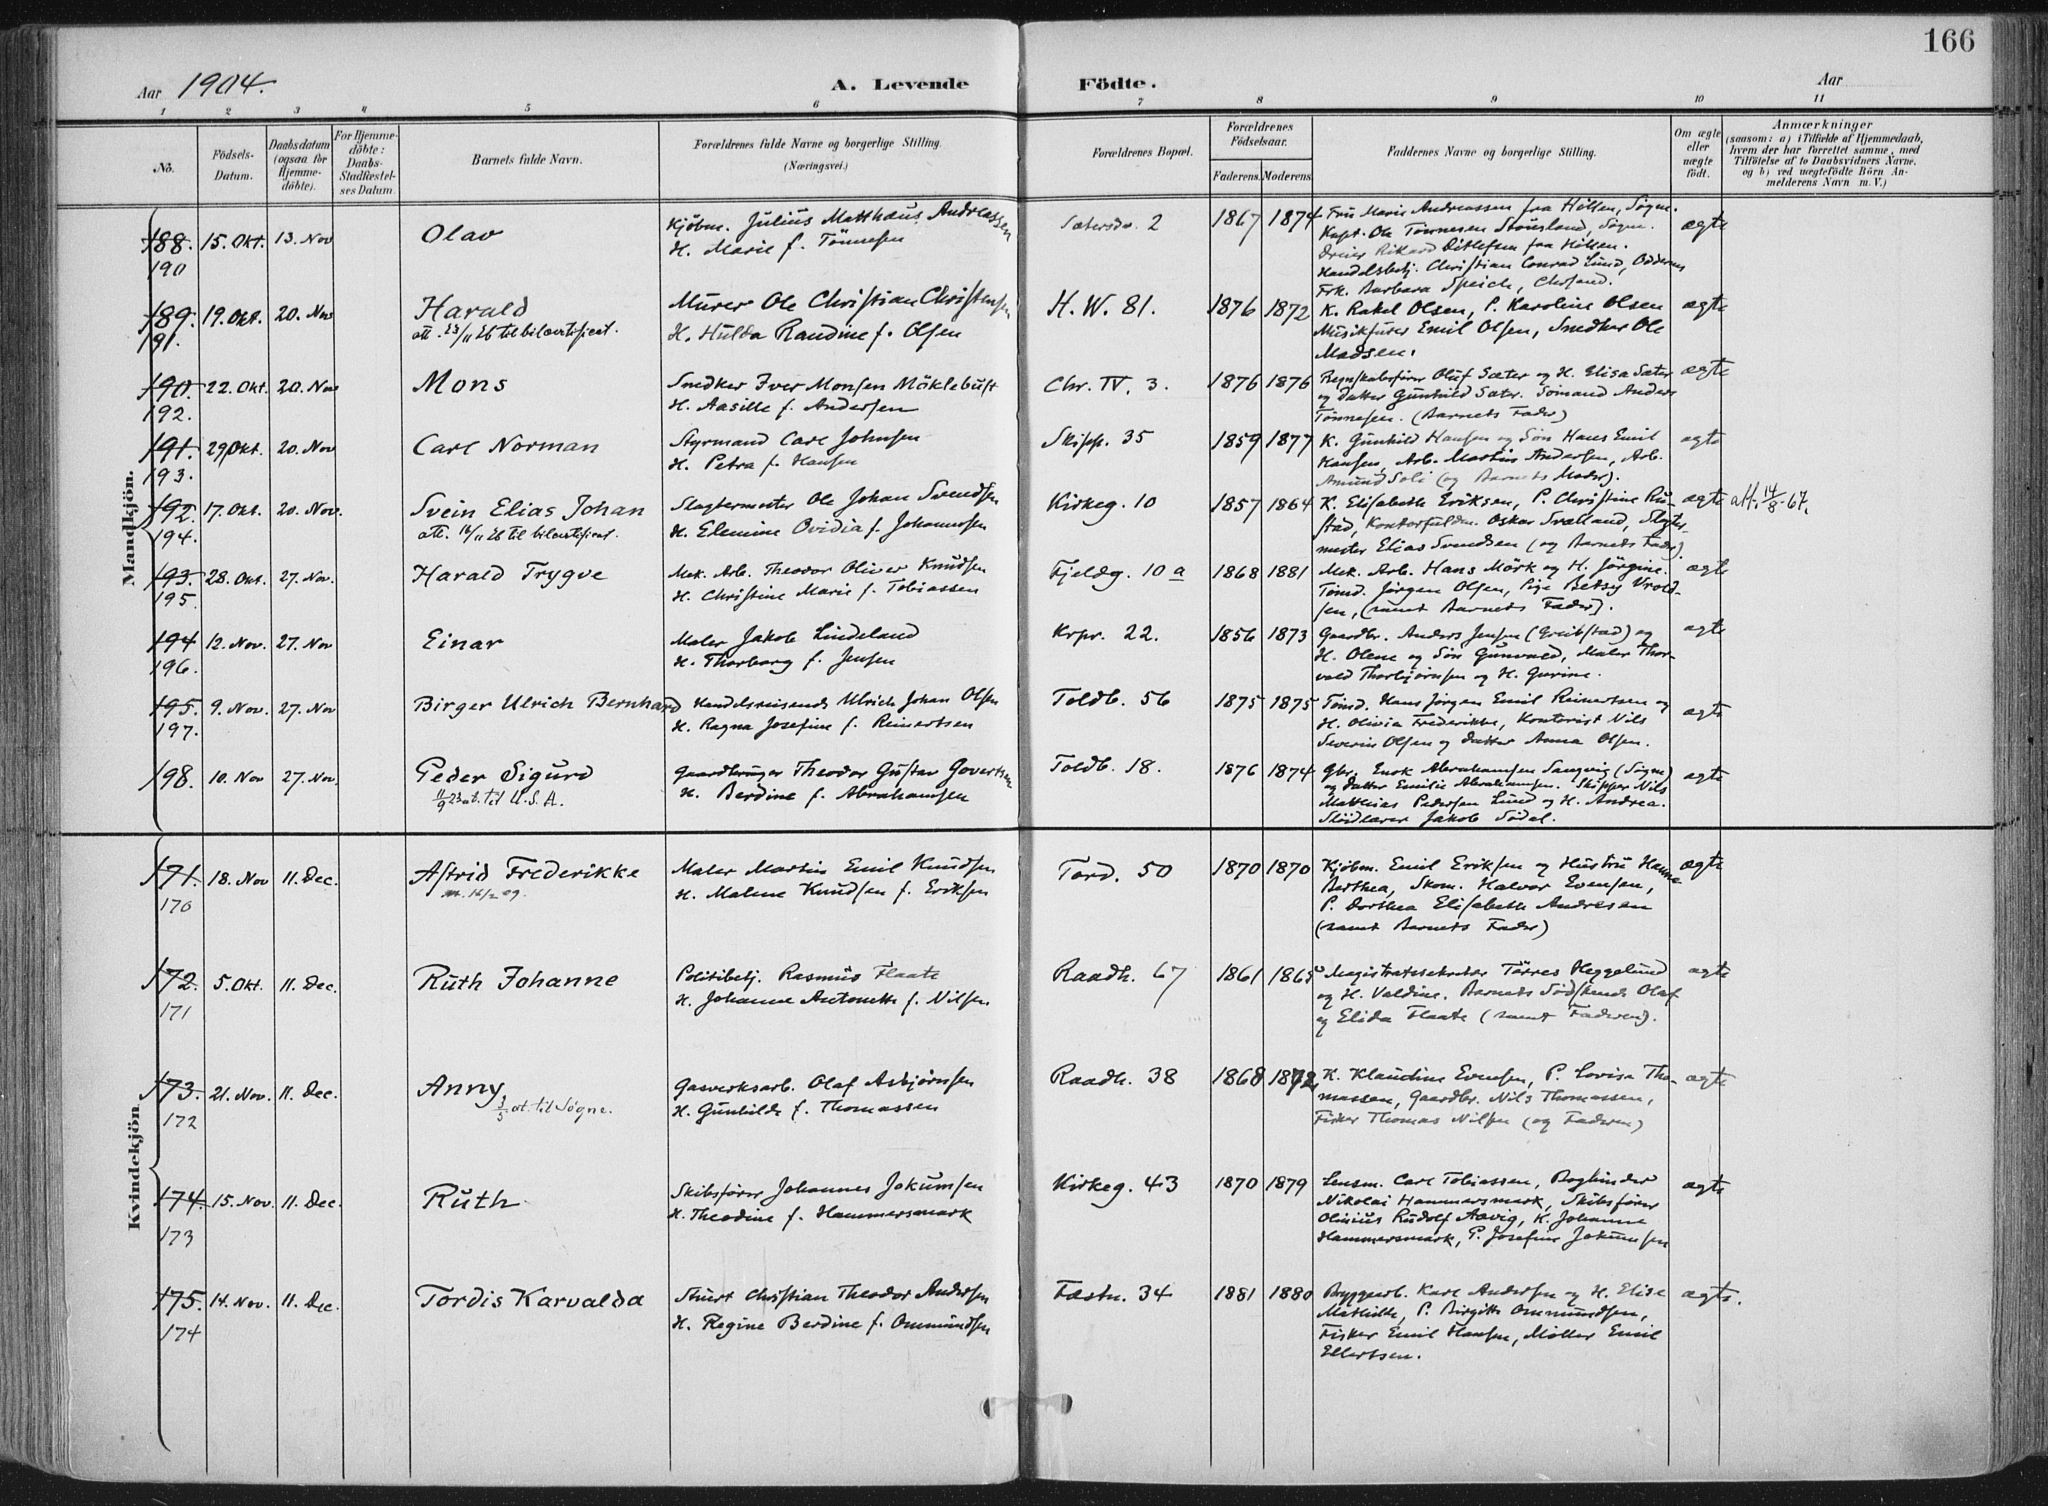 166
Aar 1904.
A. Levende Födte.
Aar
1 2 3 4 5 6 7 8 9 10 11
No.
Födsels-Datum.
Daabsdatum (ogsaa for Hjemme-döbte).
For Hjemme-döbte: Daabs-Stadfæstel-ses Datum.
Barnets fulde Navn.
Forældrenes fulde Navne og borgerlige Stilling. (Næringsvei.)
Forældrenes Bopæl.
Forældrenes Födselsaar.
Faderens. Moderens.
Faddernes Navne og borgerlige Stilling.
Om ægte eller uægte født.
Anmærkninger
(saasom: a) i Tilfælde af Hjemmedaab, hvem der har forrettet samme, med Tilföielse af to Daabsvidners Navne, og b) ved uægtefödte Börn Anmelderens Navn m. V.)
Mandkjön.
188. 15. Okt. 13. Nov Olav
190
Kjøbm. Julius Matthæus Andreassen
H. Marie f. Tönnesen
Sætersdr. 2 1867 1874
Fru Marie Andreassen fra Höllen, Søgne.
Kapt. Ole Tönnesen Stöusland, Søgne.
Dreier Rikard Ditlefsen fra Höllen.
Handelsbetj. Christian Conrad Lund, Oddernes
Frk. Barbara Speich, Chrsand.
ægte
189. 19. Okt. 20. Nov Harald
191.
att. 23/11 26 til bilcertificat.
Murer Ole Christian Christensen
H. Hulda Randine f. Olsen
H. W. 81. 1876 1872
K. Rakel Olsen, P. Karoline Olsen
Musikfurer Emil Olsen, Snedker Ole
Madsen.
ægte
190. 22. Okt. 20. Nov Mons
192.
Snedker Iver Monsen Möklebust
H. Aasille f. Andersen
Chr. IV. 3. 1876 1876
Regnskabsfører Oluf Sæter og H. Elisa Sæter
og datter Gunhild Sæter. Sömand Anders
Tönnesen. (Barnets Fader)
ægte
191. 29. Okt. 20. Nov Carl Norman
193.
Styrmand Carl Johnsen
H. Petra f. Hansen
Skipp. 35 1859 1877
K. Gunhild Hansen og Søn Hans Emil
Hansen, Arb. Martin Andersen, Arb.
Amund Soli (og Barnets Moder).
ægte
192. 17. Okt. 20. Nov. Svein Elias Johan
194.
att. 16/11 26 til bilcertificat.
Slagtermester Ole Johan Svendsen
H. Elemine Ovidia f. Johannesen
Kirkeg. 10 1857 1864
K. Elisabeth Eriksen, P. Christine Ru-
stad, Kontorfuldm. Oskar Svaland, Slagter-
mester Elias Svendsen (og Barnets Fader).
ægte att. 14/8-67.
193. 28. Okt. 27. Nov. Harald Trygve
195.
Mek. Arb. Theodor Oliver Knudsen
H. Christine Marie f. Tobiassen
Fjeldg. 10 a 1868 1881
Mek. Arb. Hans Mörk og H. Jörgine.
Tömd. Jörgen Olsen, Pige Betsy Vrold-
sen, (samt Barnets Fader).
ægte
194 12. Nov. 27. Nov Einar
196.
Maler Jakob Lindeland
H. Thorborg f. Jensen
Krpr. 22. 1856 1873
Gaardbr. Anders Jensen (Greibstad) og
H. Olene og Søn Gunvald, Maler Thor-
vald Thorbjörnsen og H. Gurine.
ægte
195. 9. Nov. 27. Nov Birger Ulrich Bernhard
197.
Handelsreisende Ulrich Johan Olsen
H. Ragna Josefine f. Reinertsen
Toldb. 56 1875 1875
Tømd. Hans Jørgen Emil Reinertsen og
H. Olivia Frederikke, Kontorist Nils
Severin Olsen og datter Anna Olsen.
ægte
198. 10. Nov 27. Nov. Peder Sigurd
11/9 23 at. til U.S.A.
Gaardbruger Theodor Gustav Govertsen
H. Berdine f. Abrahamsen
Toldb. 18. 1876 1874
Gbr. Enok Abrahamsen Langvig (Søgne)
og datter Emilie Abrahamsen. Skipper Nils
Matthias Pedersen Lund og H. Andrea.
Slöidlærer Jakob Södal.
ægte
Kvindekjön.
171. 18. Nov 11. Dec. Astrid Frederikke
170
Maler Martin Emil Knudsen
H. Malene Knudsen f. Eriksen
Tord. 50 1870 1870
Kjøbm. Emil Eriksen og Hustru Hanne
Berthea, Skom. Halvor Evensen,
P. Dorthea Elisabeth Andresen
(samt Barnets Fader)
ægte
172. 5. Okt. 11. Dec. Ruth Johanne
171
Politibetj. Rasmus Flaate
H. Johanne Antonette f. Nilsen
Raadh. 67 1861 1865
Magistratssekretær Törres Heggelund
og H. Valdine. Barnets Södskende Olaf
og Elida Flaate (samt Faderen).
ægte
173. 21. Nov. 11. Dec. Anny
172
3/5 at. til Søgne.
Gasverksarb. Olaf Asbjørnsen
H. Gunhilde f. Thomassen
Raadh. 38 1868 1872
K. Klaudine Evensen, P. Lovisa Tho-
massen, Gaardbr. Nils Thomassen,
Fisker Thomas Nilsen (og Faderen)
ægte
174. 15. Nov. 11. Dec. Ruth
173
Skibsfører Johannes Jokumsen
H. Theodine f. Hammersmark
Kirkeg. 43 1870 1879
Lensm. Carl Tobiassen, Bogbinder
Nikolai Hammersmark, Skibsfører
Olinius Rudolf Aavig, K. Johanne
Hammersmark, P. Josefine Jokumsen
ægte
175. 14. Nov. 11. Dec. Tordis Karvalda
174
Stuert Christian Theodor Andersen
H. Regine Berdine f. Ommundsen
Fæstn. 34 1881 1880
Bryggearb. Karl Andersen og H. Elise
Mathilde, P. Birgitte Ommundsen,
Fisker Emil Hansen, Møller Emil
Ellertsen.
ægte.